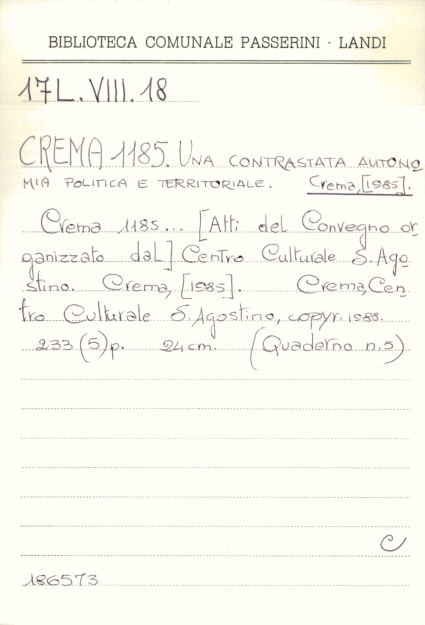 BIBLIOTECA COMUNALE PASSERINI - LANDI
17L.VIII.18
CREMA 1185. UNA CONTRASTATA AUTONO
MIA POLITICA E TERRITORIALE. Crema,[1985].
Crema 1185... [Atti del Convegno or
ganizzato dal] Centro Culturale S.Ago
stino. Crema, [1985]. Crema, Cen
tro Culturale S.Agostino, copyr. 1988.
233 (5) p. 24 cm. (Quaderno n.5)
C
186573